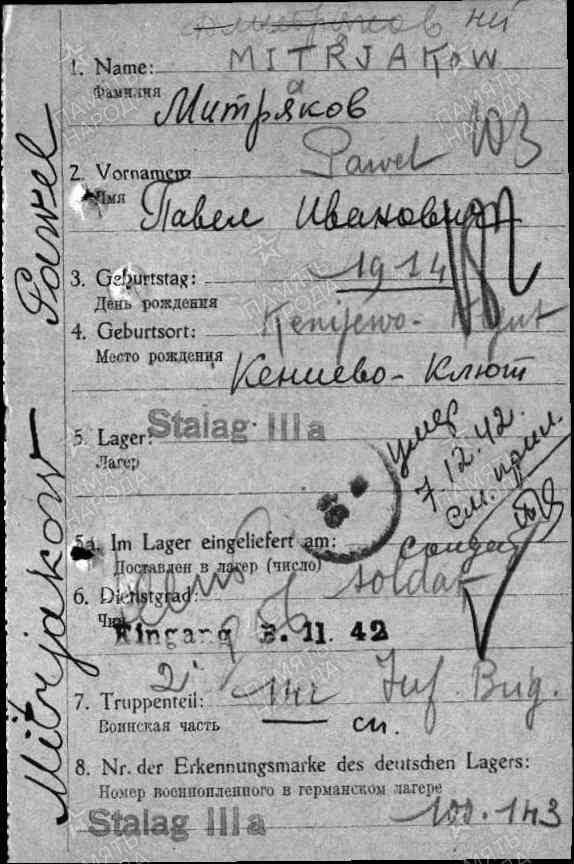 ний
1. Name: MITRJAKOW
Фамилия
Митряков
Pawel
2. Vornamen
Имя
Павел Иванович
3. Geburtstag: 1914
День рождения
4. Geburtsort: Kenijewo-
Место рождения
Кениево-Клют
5. Lager: Stalag IIIa
Лагерь
умер
7.12.42.
см. прил.
5a. Im Lager eingeliefert am:
Доставлен в лагерь (число)
солдат
6. Dienstgrad: soldat
Чин
Eingang 3. 11. 42
7. Truppenteil: Inf. Brig.
Воинская часть
сп.
8. Nr. der Erkennungsmarke des deutschen Lagers:
Номер военнопленного в германском лагере
Stalag IIIa 100.143
Mitrjakow Pawel
ПАМЯТЬ НАРОДА